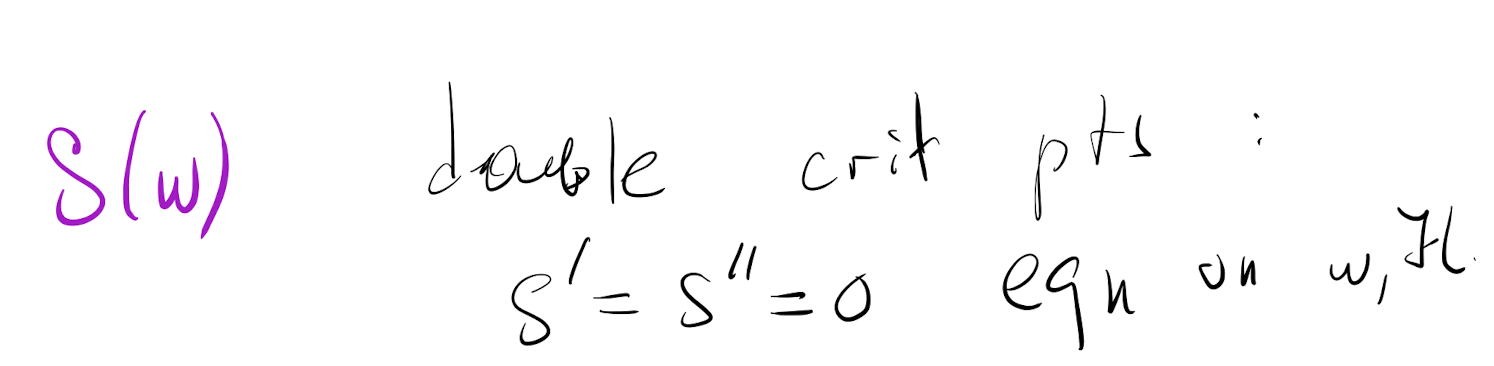 S(w) double crit pts :
S' = S'' = 0 eqn on w, H.